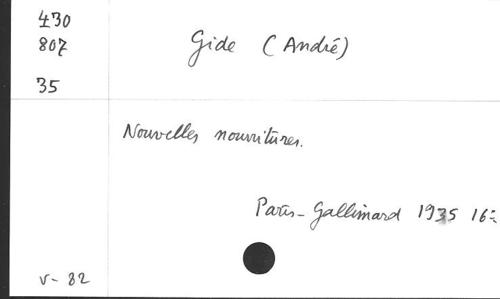 430
807
35
Gide (André)
Nouvelles nourritures.
Paris - Gallimard 1935 16º
V - 82